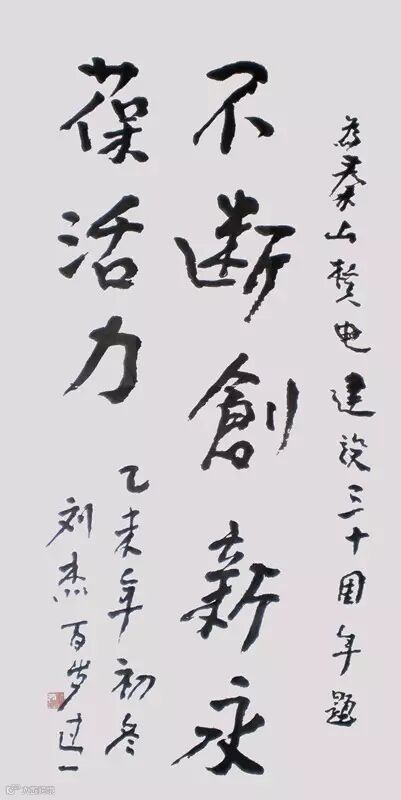 为秦山核电建设三十周年题
不断創新永
葆活力
乙未年初冬
刘杰百岁过一